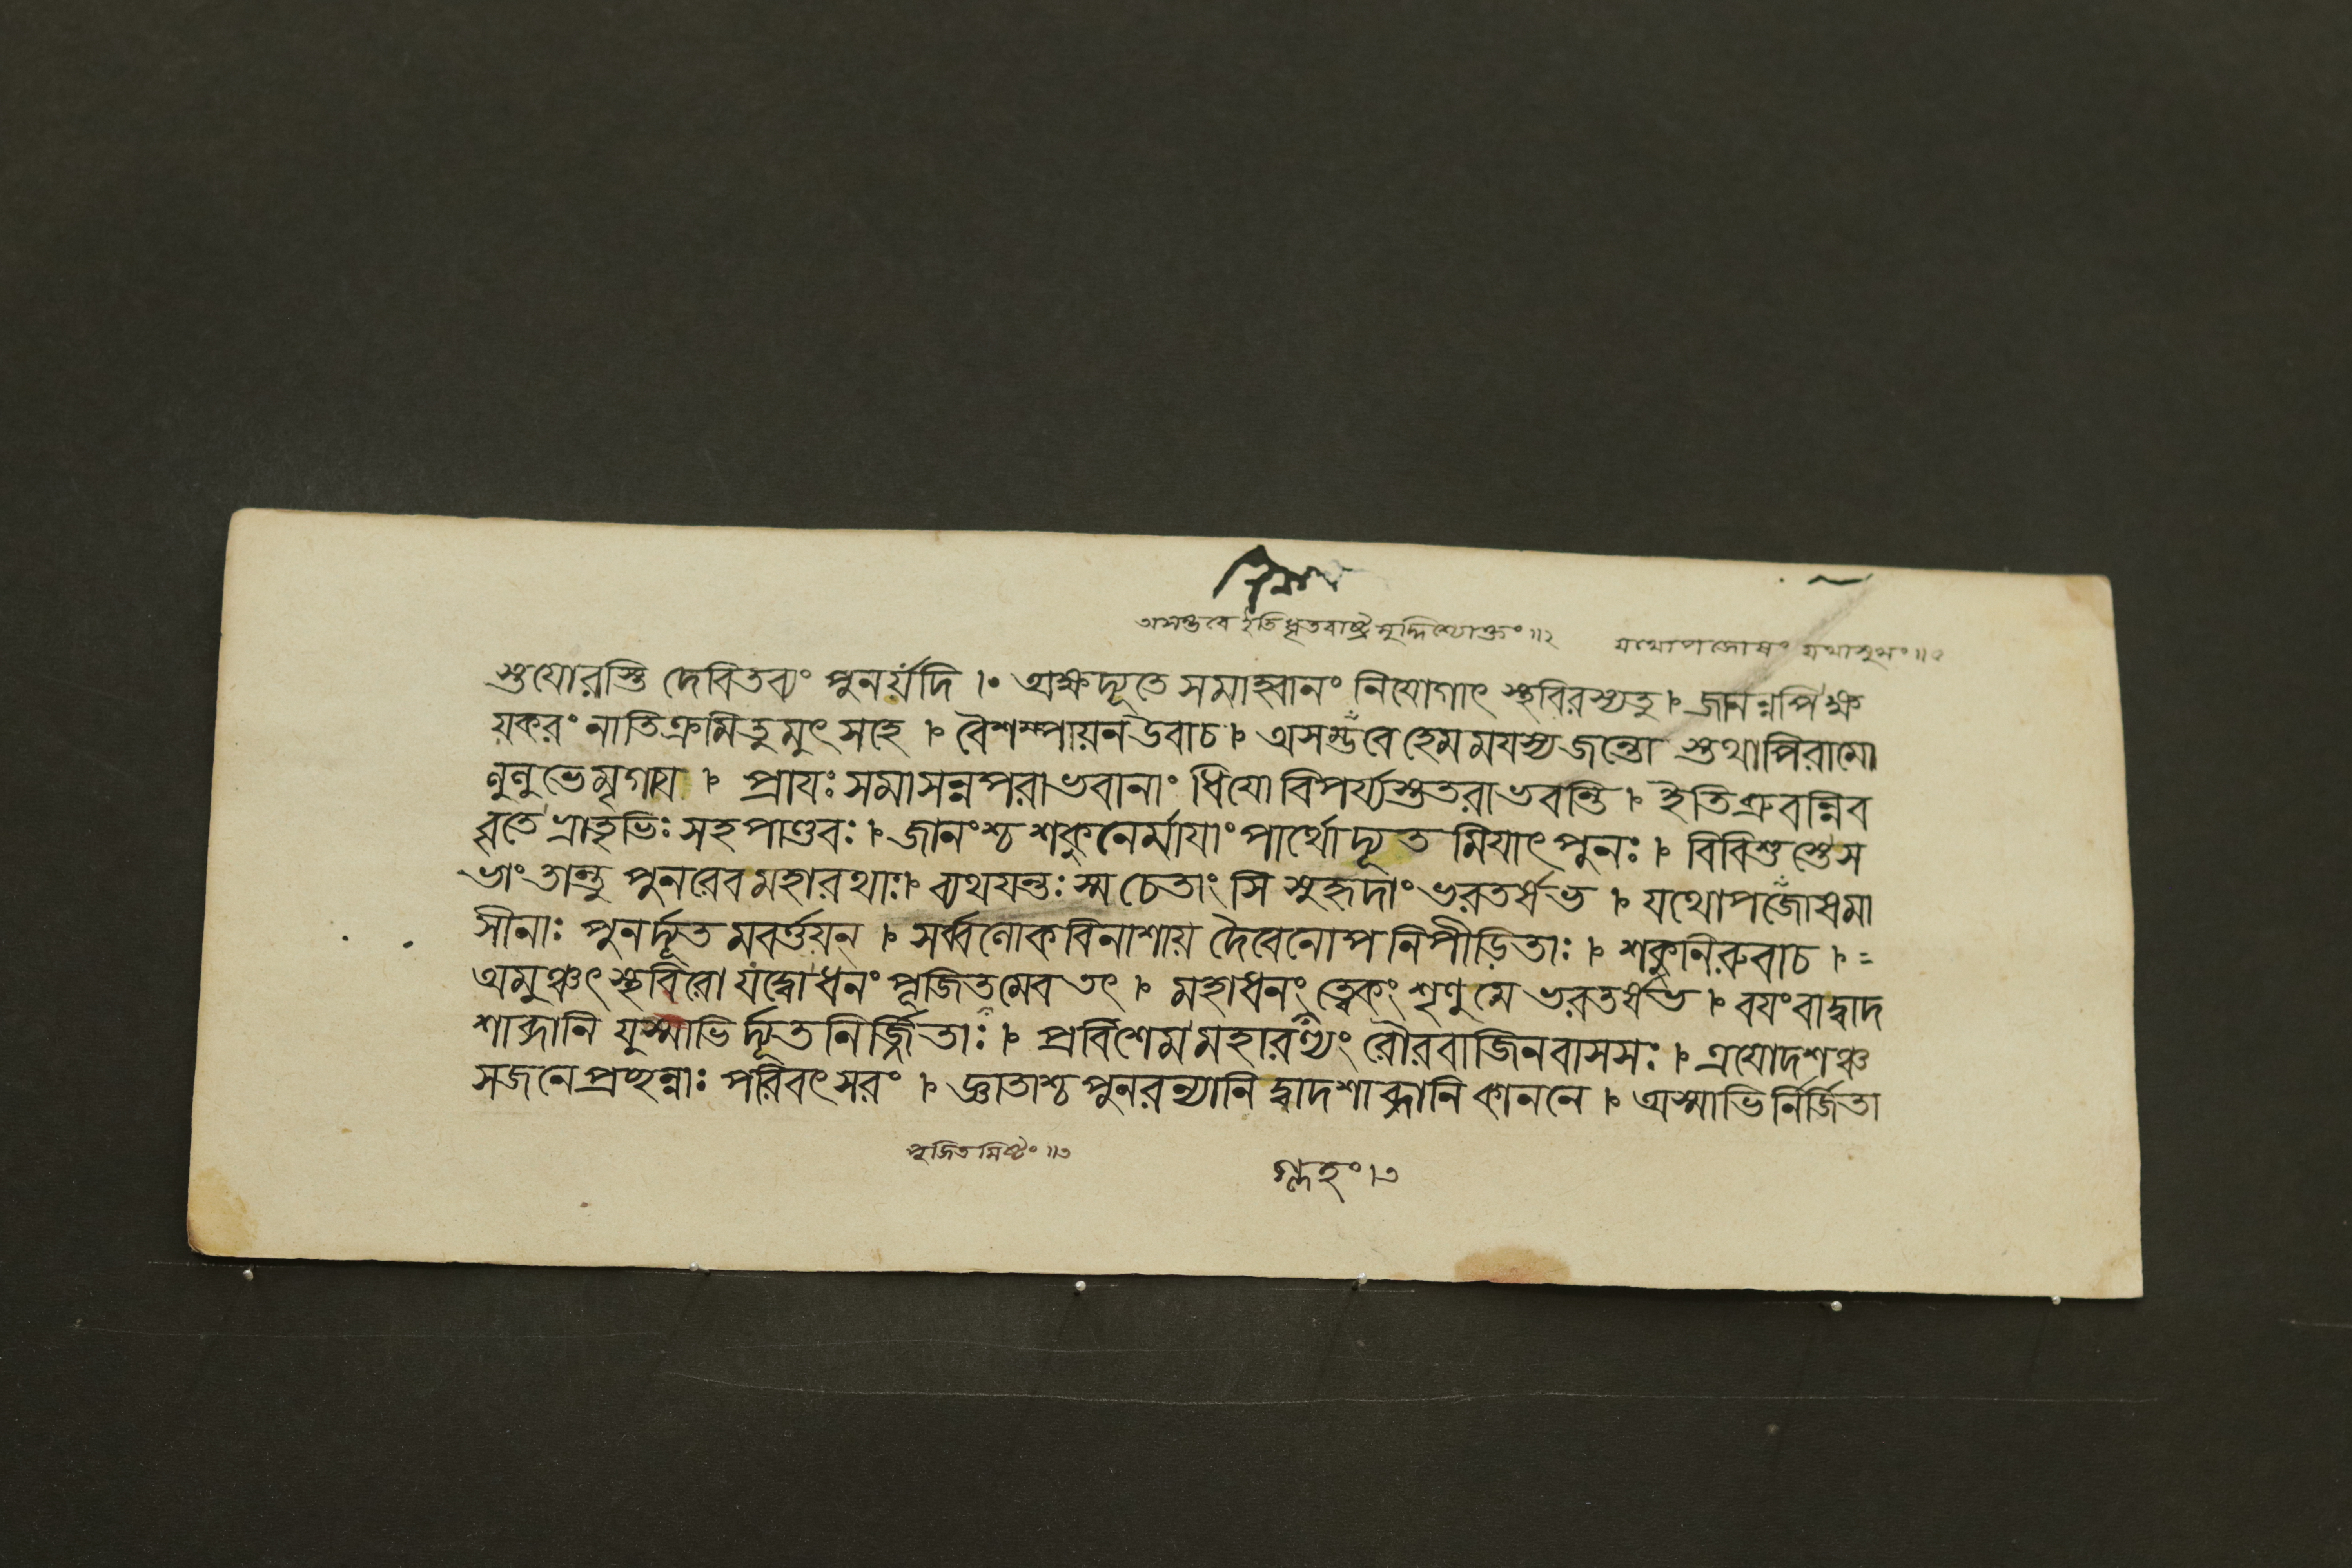 অসম্ভবে ইতিধৃতরাষ্ট্রমুদ্দিশ্যোক্তং॥২ যথোপজোষং যথাসুখং॥৫
স্তুযোরস্তি দেবিতব্যং পুনর্যদি ।• অক্ষদ্যূতে সমাহ্বানং নিযোগাৎ স্থবিরস্যতু । জানন্নপিক্ষ
য়করং নাতিক্রমিতুমুৎসহে । বৈশম্পায়নউবাচ । অসম্ভবেহেমমযস্যজন্তো স্তথাপিরামো
লুলুভেমৃগায । প্রাযঃ সমাসন্নপরাভবানাং ধিযোবিপর্য্যস্ততরাভবন্তি । ইতিব্রুবন্নিব
বৃতে ভ্রাতৃভিঃ সহপাণ্ডবঃ । জানংশ্চ শকুনের্মাযাং পার্থোদ্যূত মিযাৎপুনঃ । বিবিশুস্তেস
ভাং তান্তু পুনরেবমহারথাঃ। ব্যথযন্তঃ স্ম চেতাংসি সুহৃদাং ভরতর্ষভ । যথোপজোষমা
সীনাঃ পুনর্দ্যূতমবর্ত্তয়ন্ । সর্ব্বলোকবিনাশায় দৈবেনোপনিপীড়িতাঃ । শকুনিরুবাচ । =
অমুঞ্চৎ স্থবিরো যদ্বোধনং পূজিতমেব তৎ । মহাধনং ত্বেকং শৃণুমে ভরতর্ষভ । বযং বাদ্বাদ
শাব্দানি যুস্মাভির্দ্যূতনির্জ্জিতাঃ । প্রবিশেমমহারণ্যং রৌরবাজিনবাসসঃ । ত্রযোদশঞ্চ
সজনেপ্রচ্ছন্নাঃ পরিবৎসরং । জ্ঞাতাশ্চ পুনরন্যানি দ্বাদশাব্দানি কাননে । অস্মাভির্নির্জিতা
পূজিতমিষ্টং॥৩ গ্লহং।৩